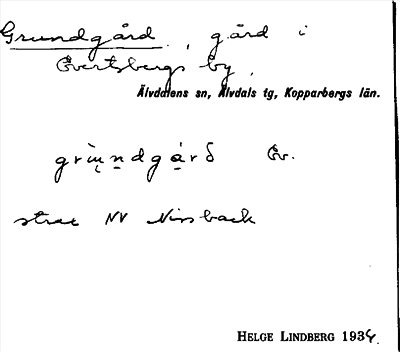 Grundgård, gård i
Evertsbergs by,
Älvdalens sn, Älvdals tg, Kopparbergs län.
grùn̥dgá̱rδ Ev.
strax NV Nissback
HELGE LINDBERG 1934.